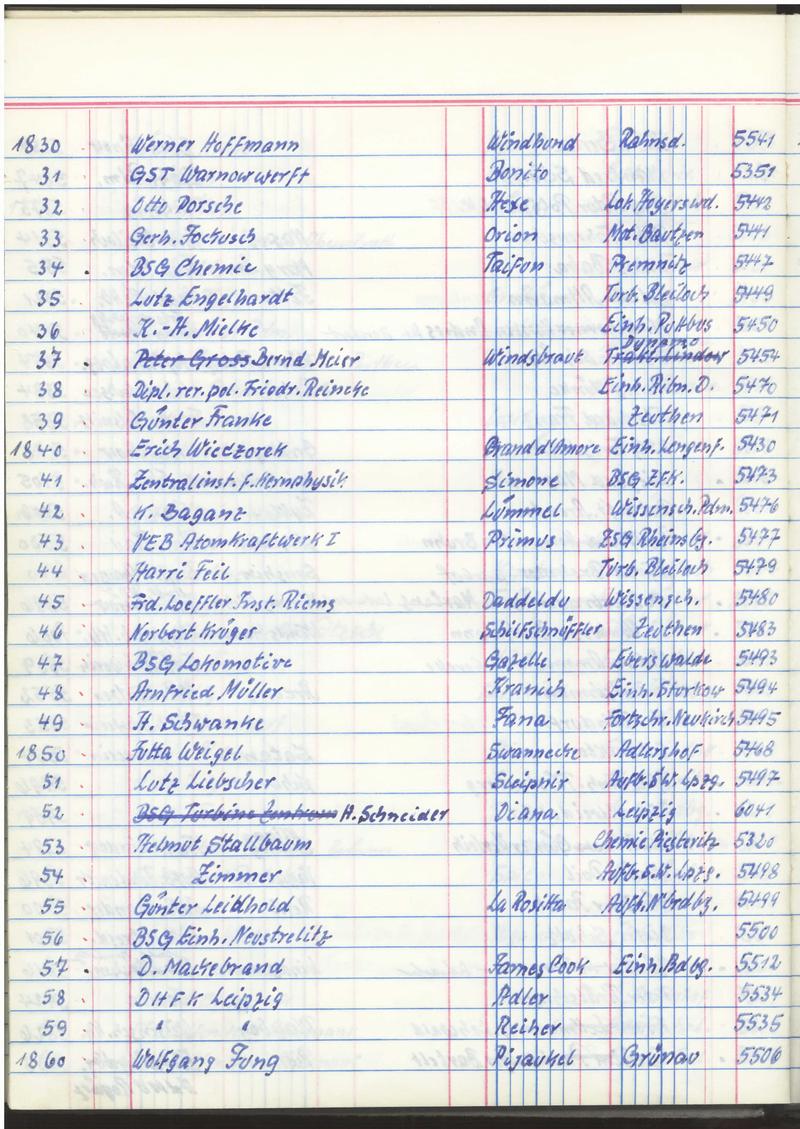 1830 Werner Hoffmann Windhund Rahnsd. 5541
31 GST Warnowwerft Bonito 5351
32 Otto Porsche Hexe Lok.Hoyerswd. 5442
33 Gerh. Jockusch Orion Mot. Bautzen 5441
34 BSG Chemie Taifun Premnitz 5447
35 Lutz Engelhardt Turb. Bleiloch 5449
36 K.-H. Mielke Einh. Putbus 5450
Dynamo
37 Peter Gross Bernd Meier Windsbraut Trakt. Lindow 5454
38 Dipl. rer. pol. Friedr. Reincke Einh. Ribn. D. 5470
39 Günter Franke Zeuthen 5471
1840 Erich Wieczorek Grand d'Amore Einh. Lengenf. 5430
41 Zentralinst. f. Kernphysik Simone BSG ZFK. 5473
42 K. Baganz Lümmel Wissensch. Pdm. 5476
43 VEB Atomkraftwerk I Primus ZSG Rheinsbg. 5477
44 Harri Feil Turb. Bleiloch 5479
45 Frd. Loeffler Inst. Riems Daddeldu Wissensch. 5480
46 Norbert Krüger Schilfschnüffler Zeuthen 5483
47 BSG Lokomotive Gazelle Eberswalde 5493
48 Arnfried Müller Kranich Einh. Storkow 5494
49 H. Schwanke Jana Fortschr. Neukirch 5495
1850 Jutta Weigel Swannecke Adlershof 5468
51 Lutz Liebscher Sleipnir Aufb. S.W. Lpzg. 5497
52 BSG Turbine Zentrum H. Schneider Diana Leipzig 6041
53 Helmut Stallbaum Chemie Piesteritz 5320
54 Zimmer Aufb. S.W. Lpzg. 5498
55 Günter Leidhold La Rositta Aufb. N'brdbg. 5499
56 BSG Einh. Neustrelitz 5500
57 D. Mackebrand James Cook Einh. Bdbg. 5512
58 DHFK Leipzig Adler 5534
59 " " Reiher 5535
1860 Wolfgang Jung Pijaukel Grünau 5506